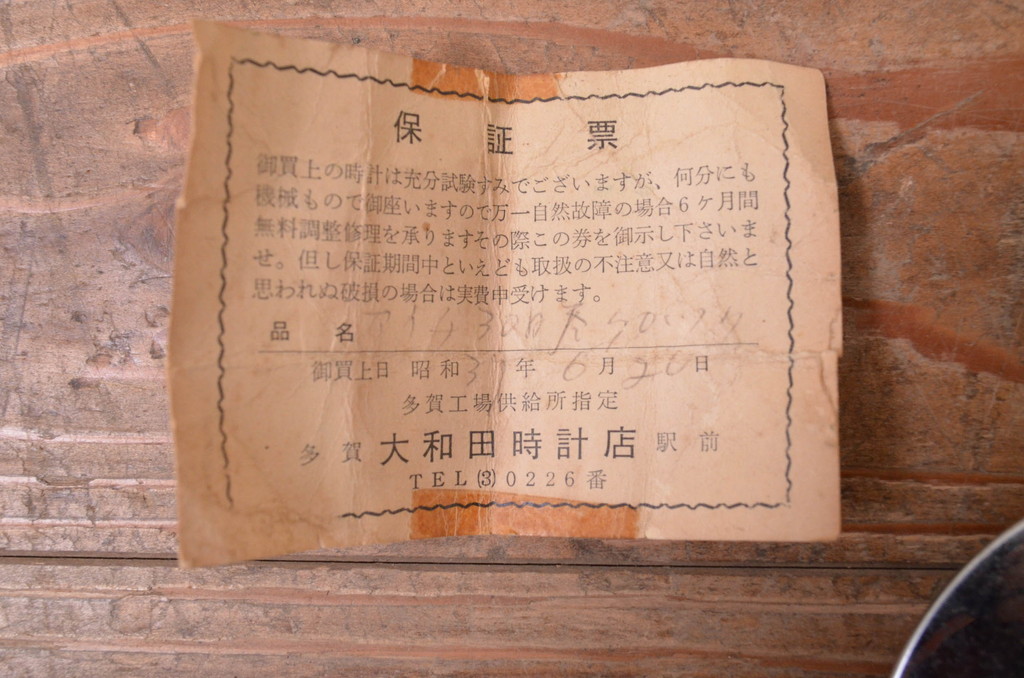 保証票
御買上の時計は充分試験すみでございますが、何分にも
機械もので御座いますので万一自然故障の場合6ヶ月間
無料調整修理を承りますその際この券を御示し下さいま
せ。但し保証期間中といえども取扱の不注意又は自然と
思われぬ破損の場合は実費申受けます。
品名 アイチ30日
御買上日 昭和3年6月20日
多賀工場供給所指定
多賀 大和田時計店 駅前
TEL(3)0226番